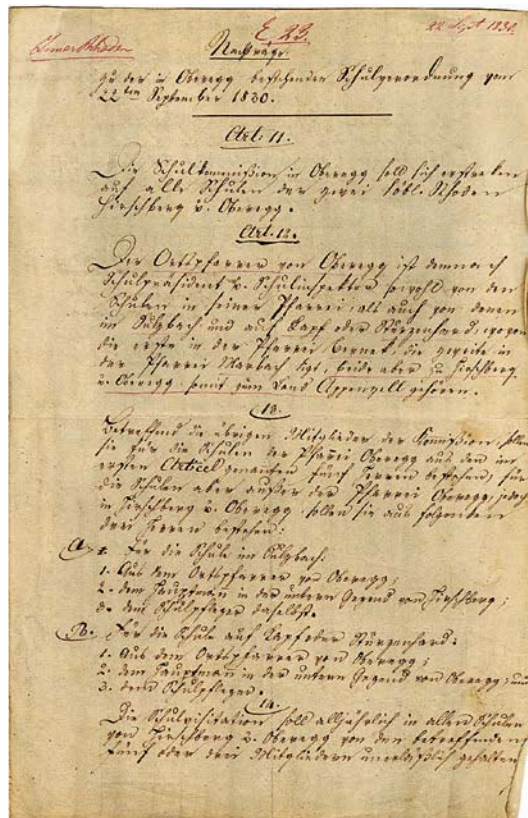 E. 23.
22. Sept. 1830.
Inner Rhoden
Nachträge
zu der in Oberegg bestehenden Schulverordnung vom
22ten September 1830.
Art. 11.
Die Schulkommißion in Oberegg soll sich erstreken
auf alle Schulen der zwei löbl. Rhoden
Hirschberg u. Oberegg.
Art. 12.
Der Ortspfarrer von Oberegg ist demnach
Schulpräsident u. Schulinspektor sowohl von den
Schulen in seiner Pfarrei, als auch von denen
im Sulzbach und auf Kapf oder Sturzenhard, wovon
die erste in der Pfarrei Bernek, die zweite in
der Pfarrei Marbach ligt, beide aber zu Hirschberg
u. Oberegg somit zum Land Appenzell gehören.
13.
Betreffend die übrigen Mitglieder der Komißion, sollen
sie für die Schulen der Pfarrei Oberegg aus den im
ersten Articel genanten fünf Herren bestehen, für
die Schulen aber außer der Pfarrei Oberegg, jedoch
in Hirschberg u. Oberegg sollen sie aus folgenden
drei Herren bestehen:
A. Für die Schule im Sulzbach:
1. Aus dem Ortspfarrer von Oberegg;
2. dem Hauptman in der untern Gegend von Hirschberg;
3. dem Schulpfleger daselbst.
B. Für die Schule auf Kapf oder Sturzenhard:
1. Aus dem Ortspfarrer von Oberegg;
2. dem Hauptman in der untern Gegend von Oberegg; und
3. dem Schulpfleger.
14.
Die Schulvisitation soll alljährlich in allen Schulen
von Hirschberg u. Oberegg von den betreffenden
fünf oder drei Mitgliedern unerläßlich gehalten